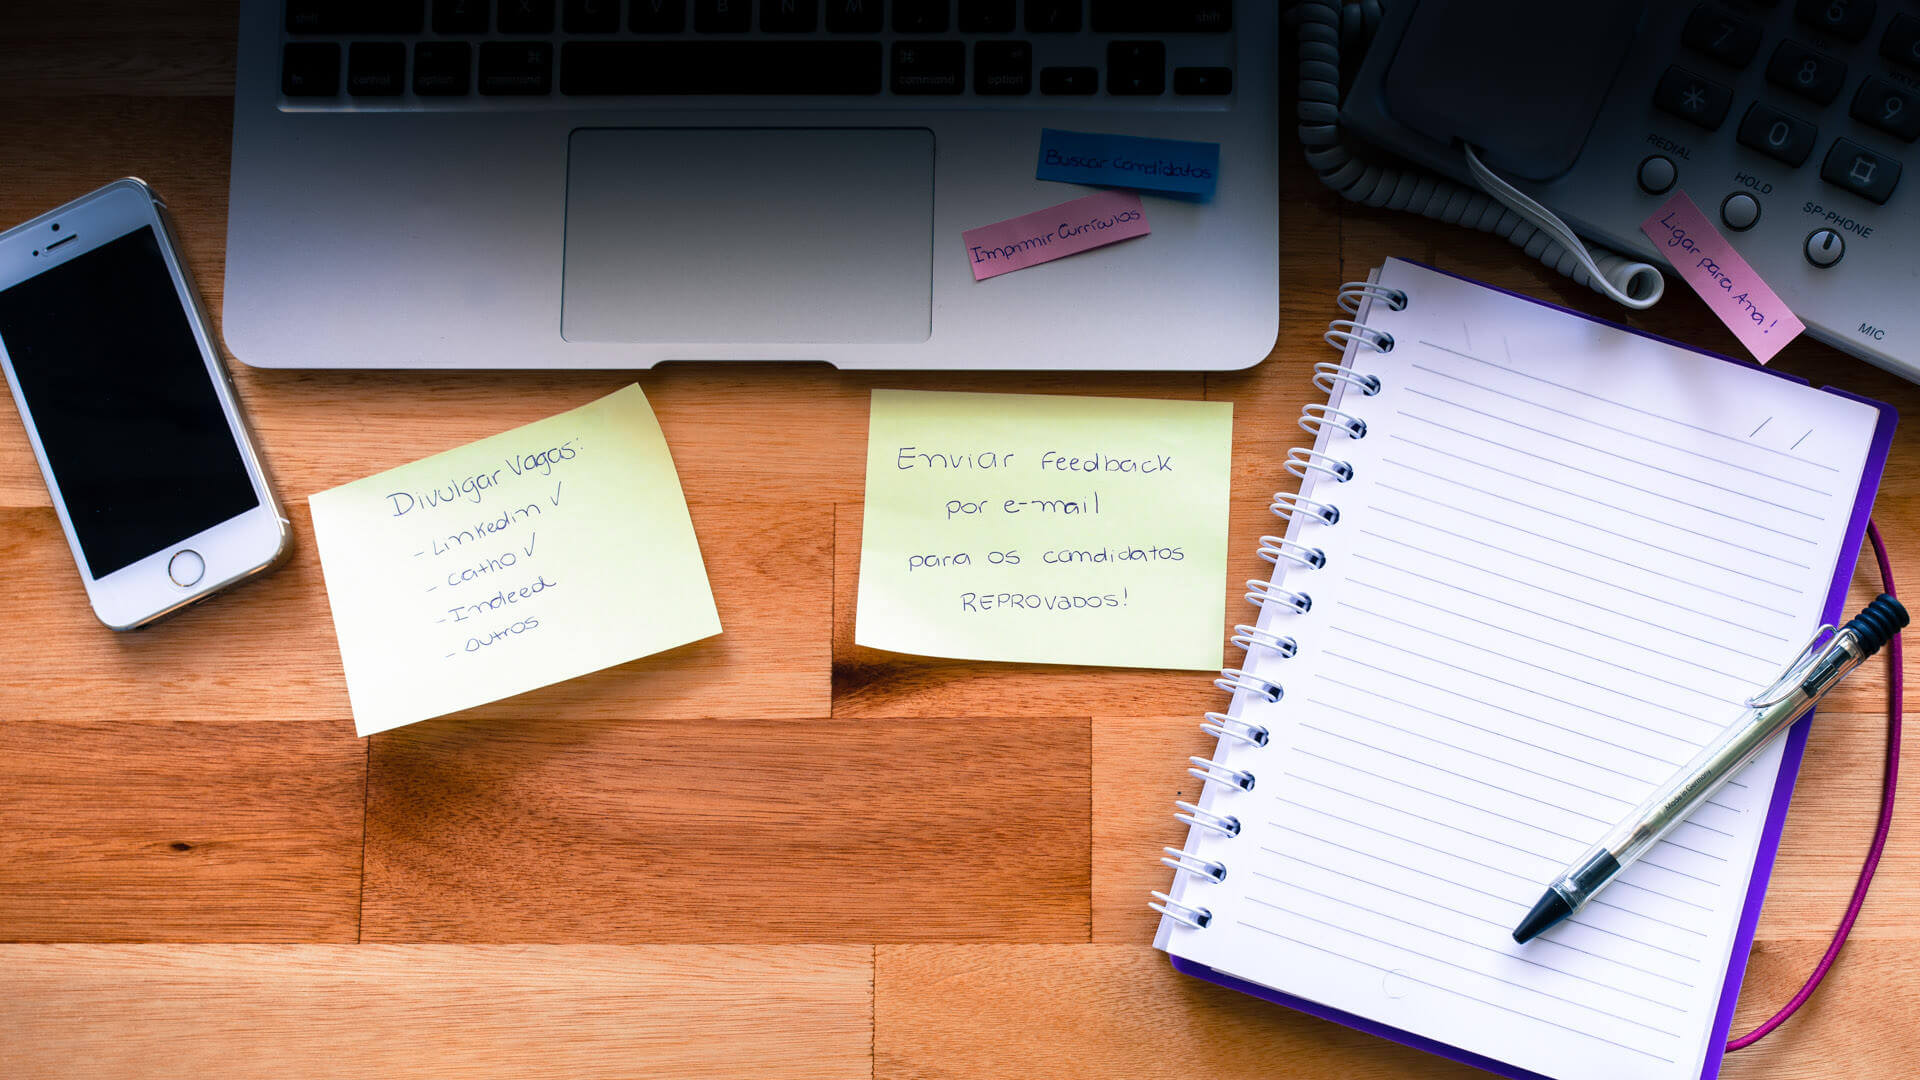 shift Z X C V B N M , . / shift
fn control option command command option
Buscar candidatos
Imprimir Currículos
7 8 9
* 0
REDIAL
HOLD
SP-PHONE
MIC
Ligar para Ana!
Divulgar Vagas:
- Linkedin ✓
- Catho ✓
- Indeed
- Outros
Enviar Feedback
por e-mail
para os candidatos
REPROVADOS!
/ /
Made in Germany